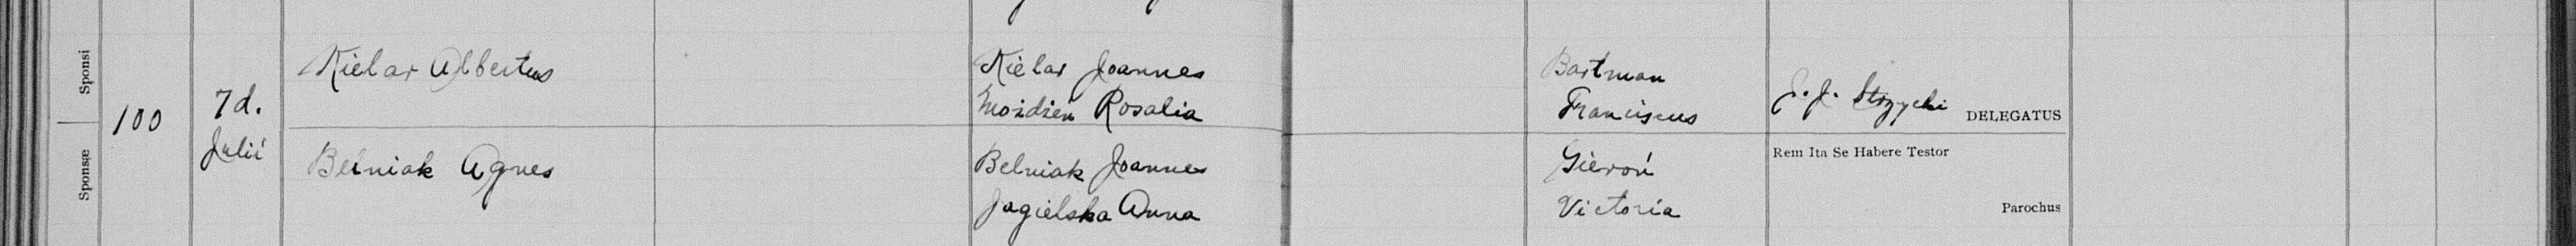 Sponsi
Sponsæ
100
7 d.
Julii
Kielar Albertus
Belniak Agnes
Kielar Joannes
Możdżeń Rosalia
Belniak Joannes
Jagielska Anna
Bartman
Franciscus
Gieroń
Victoria
J. J. DELEGATUS
Rem Ita Se Habere Testor
Parochus